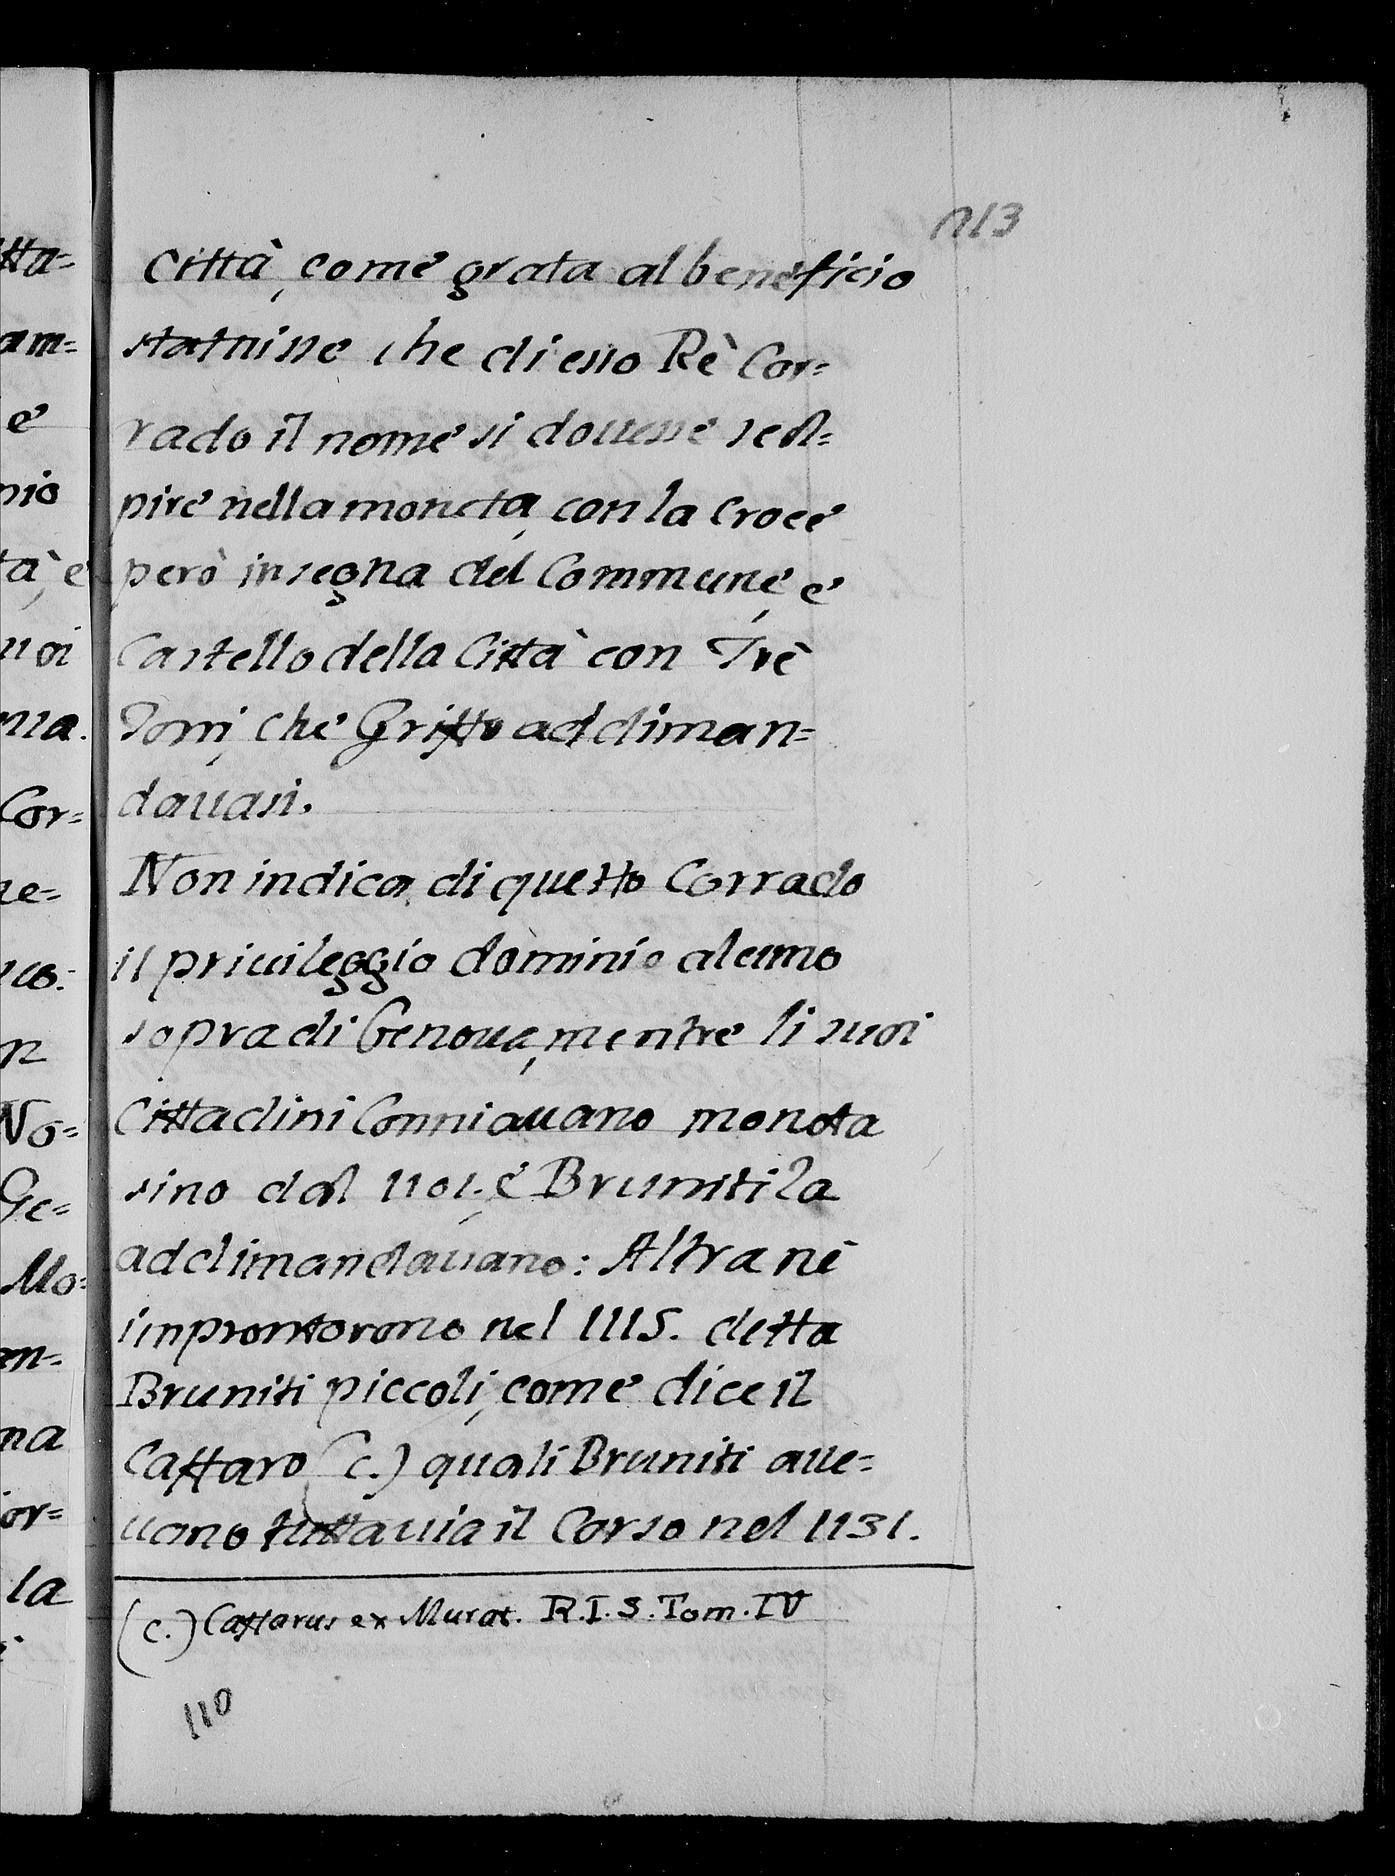 113
Città, come grata al beneficio
statuisse che di esso Rè Cor=
rado il nome si douesse scol=
pire nella moneta, con la Croce
però insegna del Commune, e
Castello della Città con Trè
Torri, che Griffo addiman=
dauasi.
Non indica di questo Corrado
il priuileggio dominio alcuno
sopra di Genoua, mentre li suoi
Cittadini Conniauano moneta
sino dal 1101. è Bruniti la
addimandauano: Altra nè
improntorono nel 1115. detta
Bruniti piccoli, come dice il
Caffaro (c.) quali Bruniti aue=
uano tuttauia il Corso nel 1131.
(c.) Caffarus ex Murat. R.I.S. Tom. IV
110